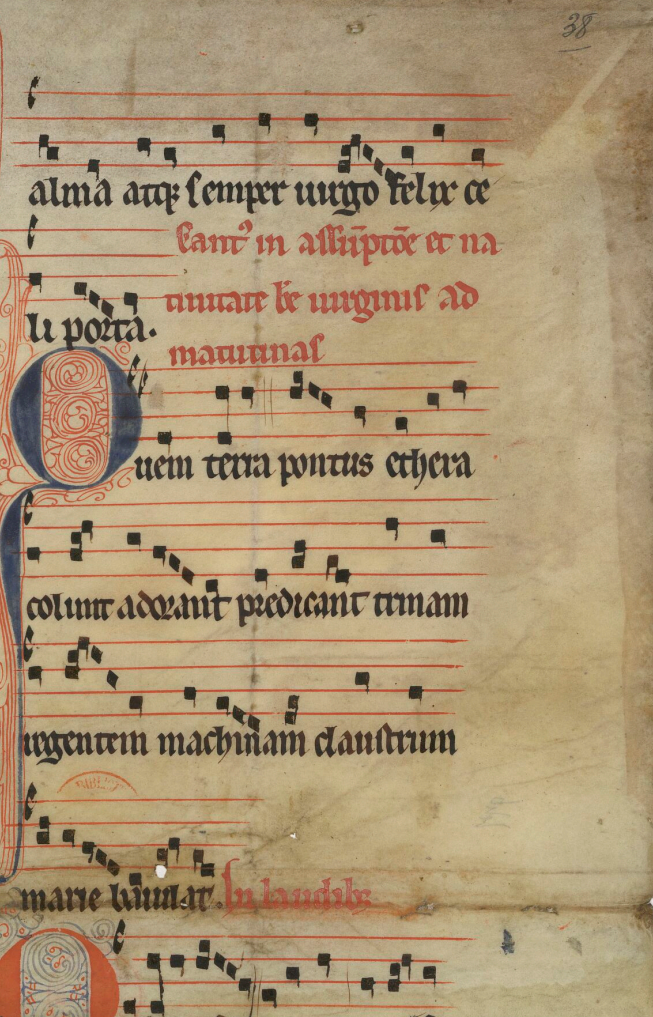 38
alma atq; semper uirgo felix ce
Cant9 in assūptōe et na
li porta.
tiuitate bē uirginis ad
matutinas
Quem terra pontus ethera
colunt adorant predicant trinam
regentem machinam claustrum
marie baiulat. In laudibȝ